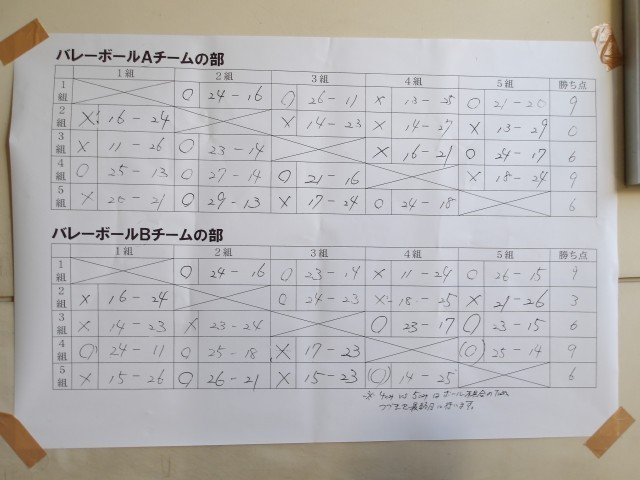 バレーボールAチームの部
1組 2組 3組 4組 5組 勝ち点
1組 ○ 24-16 ○ 26-11 × 13-25 ○ 21-20 9
2組 × 16-24 × 14-23 × 14-27 × 13-29 0
3組 × 11-26 ○ 23-14 × 16-21 ○ 24-17 6
4組 ○ 25-13 ○ 27-14 ○ 21-16 × 18-24 9
5組 × 20-21 ○ 29-13 × 17-24 ○ 24-18 6
バレーボールBチームの部
1組 2組 3組 4組 5組 勝ち点
1組 ○ 24-16 ○ 23-14 × 11-24 ○ 26-15 9
2組 × 16-24 ○ 24-23 × 18-25 × 21-26 3
3組 × 14-23 × 23-24 ○ 23-17 ○ 23-15 6
4組 ○ 24-11 ○ 25-18 × 17-23 (○) 25-14 9
5組 × 15-26 ○ 26-21 × 15-23 (○) 14-25 6
※ 4組 vs 5組は ボール
つづきを 行います。